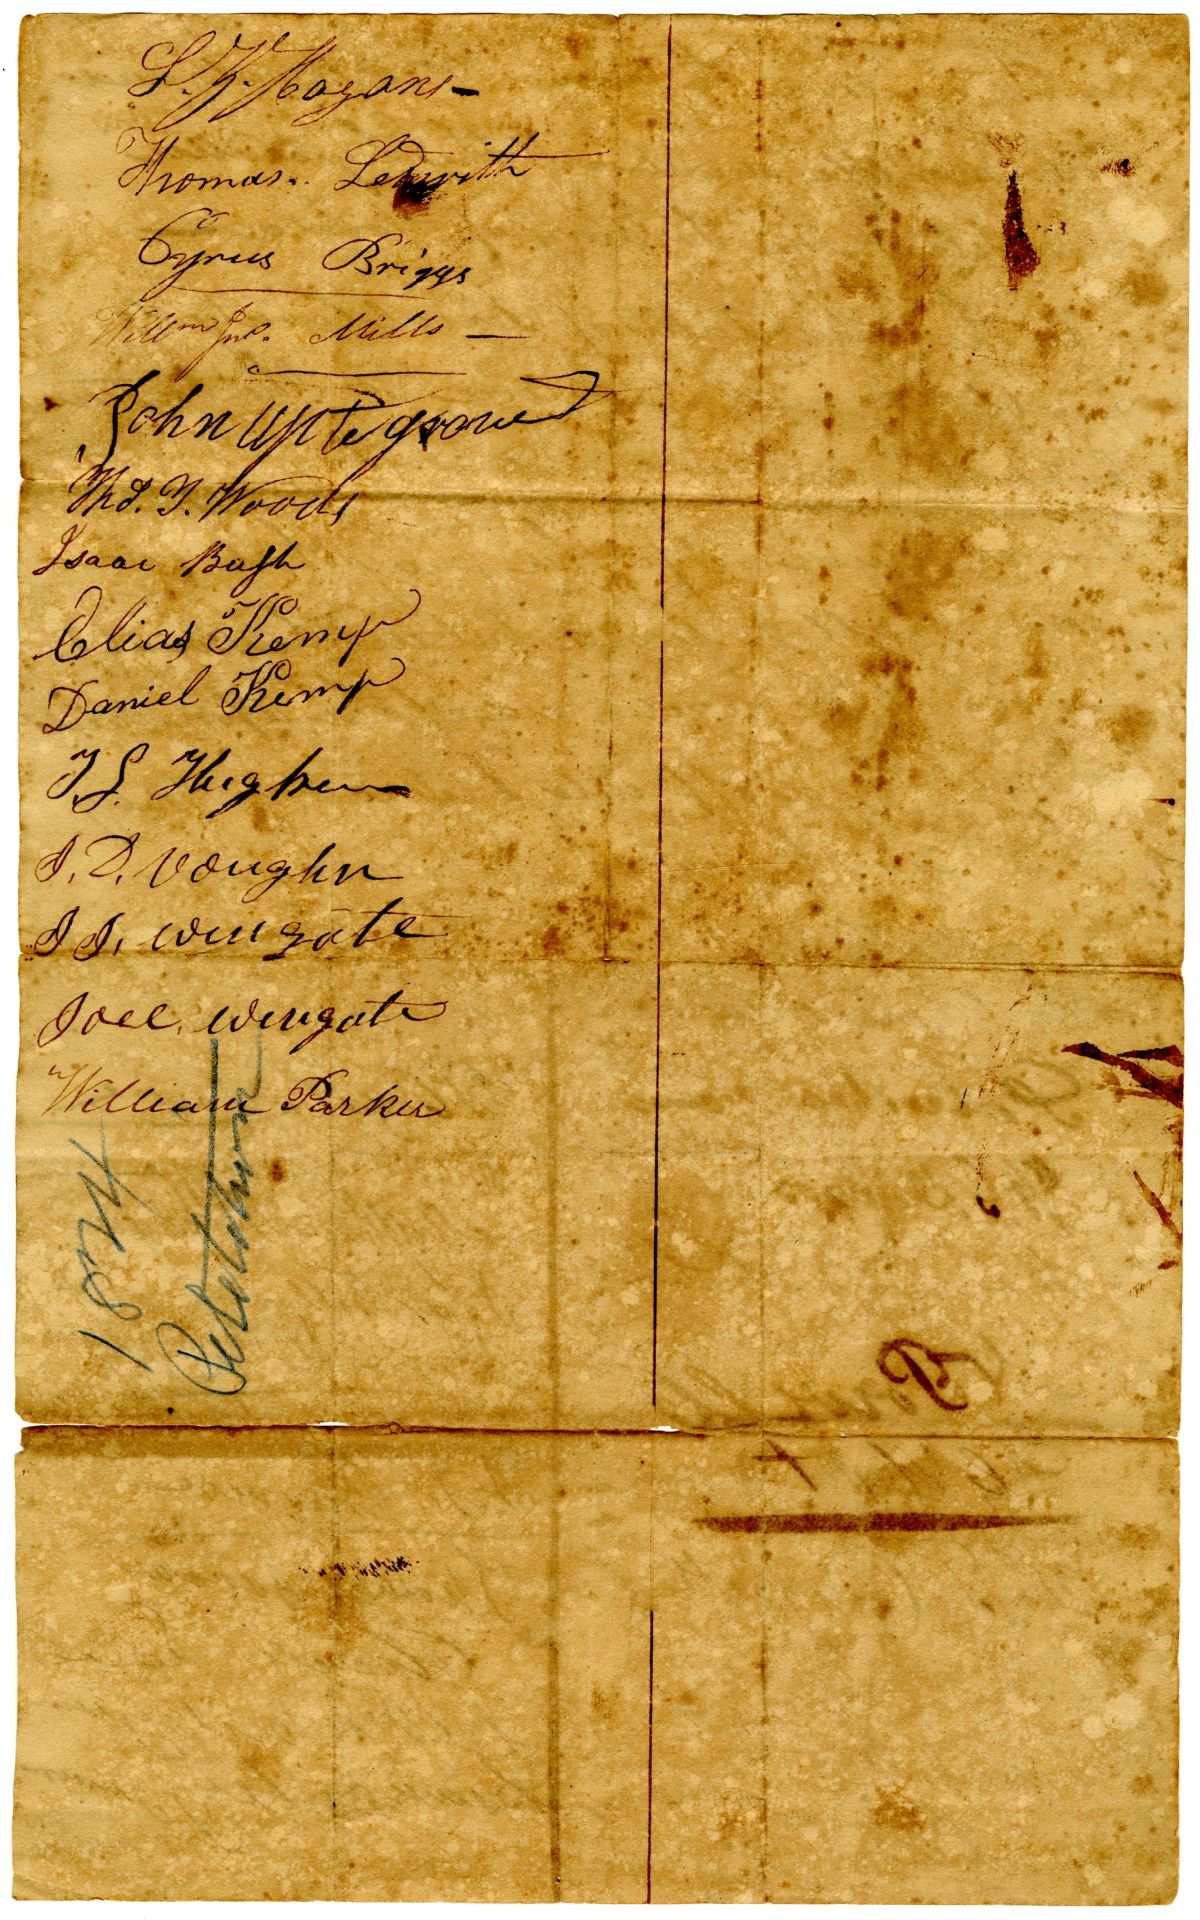 Thomas. Ledwith
Cyrus Briggs
Willm Jno. Mills —
John Uptegrove
Thos. T. Woods
Isaac Bush
Elias Kemp
Daniel Kemp
T. S. Hughes
J. D. Vaughn
J J. Wingate
Joel. Wingate
William Parker
1824
Petition